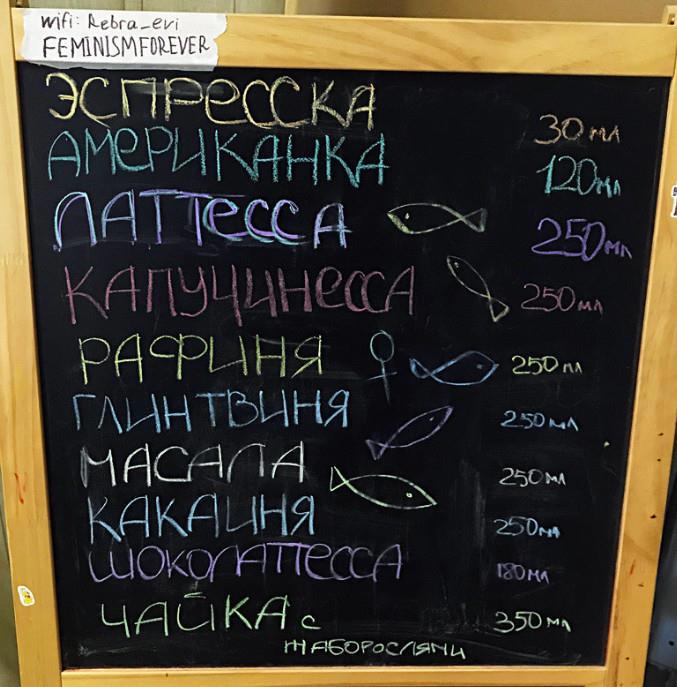 wifi: Rebra_evi
FEMINISMFOREVER
ЭСПРЕССКА 30 мл
АМЕРИКАНКА 120 мл
ЛАТТЕССА 250 мл
КАПУЧИНЕССА 250 мл
РАФИНЯ 250 мл
ГЛИНТВИНЯ 250 мл
МАСАЛА 250 мл
КАКАИНЯ 250 мл
ШОКОЛАТТЕССА 180 мл
ЧАЙКА с 350 мл
ЖАБОРОСЛЯМИ